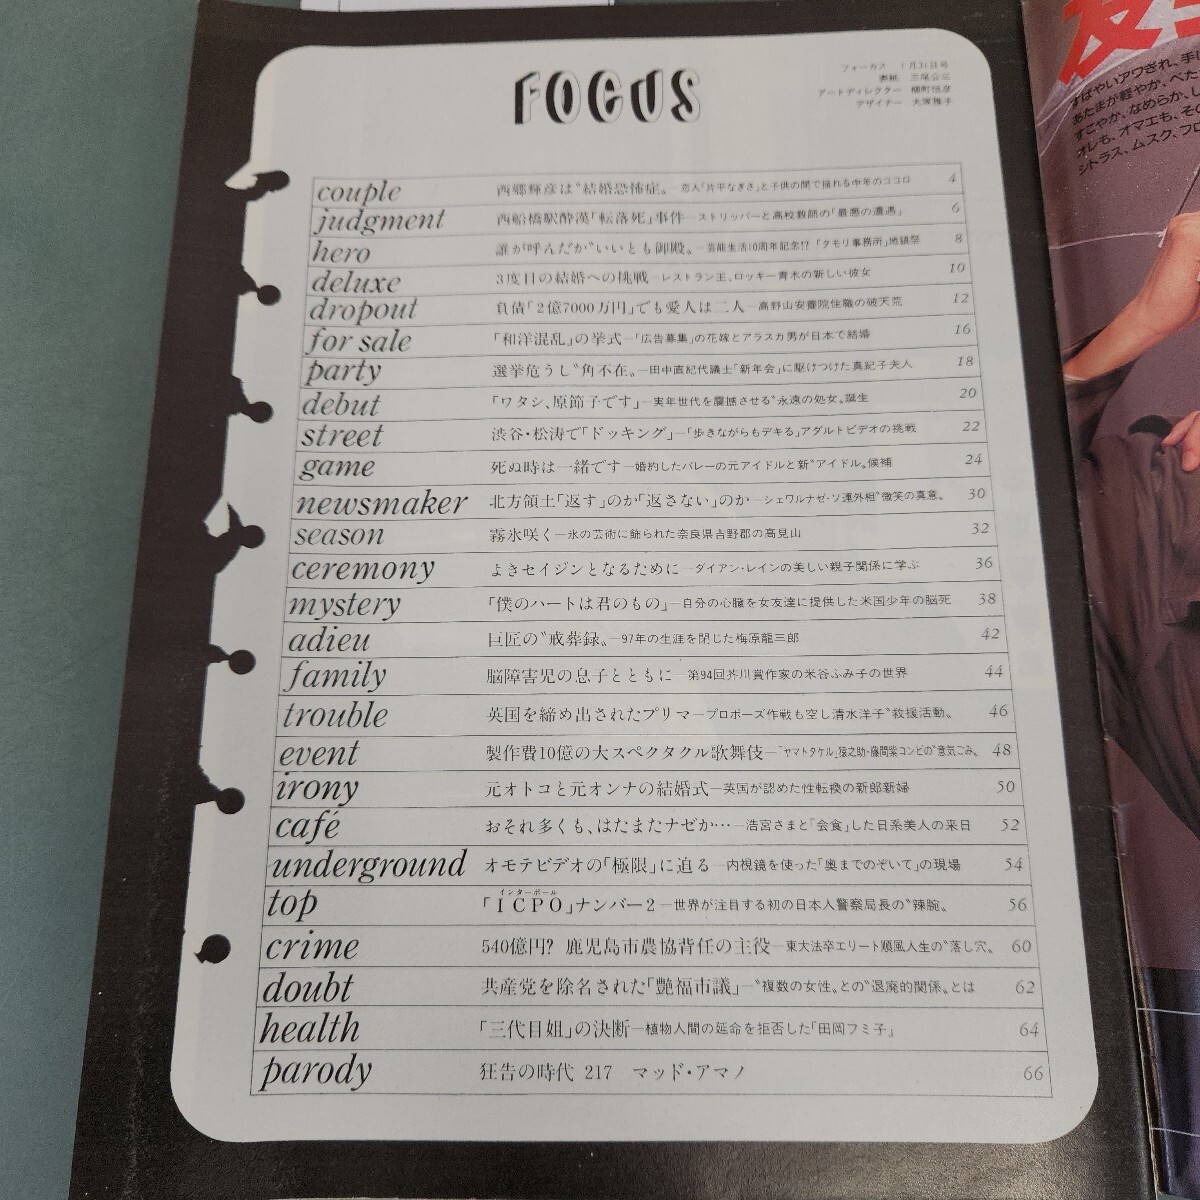 FOCUS
フォーカス 1月31日号
表紙 三尾公三
アートディレクター 柳町恒彦
デザイナー 大塚雅子
couple 西郷輝彦は〝結婚恐怖症〟—恋人「片平なぎさ」と子供の間で揺れる中年のココロ 4
judgment 西船橋駅酔漢「転落死」事件—ストリッパーと高校教師の「最悪の遭遇」 6
hero 誰が呼んだか〝いいとも御殿〟—芸能生活10周年記念!?「タモリ事務所」地鎮祭 8
deluxe 3度目の結婚への挑戦—レストラン王、ロッキー青木の新しい彼女 10
dropout 負債「2億7000万円」でも愛人は二人—高野山安養院住職の破天荒 12
for sale 「和洋混乱」の挙式—「広告募集」の花嫁とアラスカ男が日本で結婚 16
party 選挙危うし〝角不在〟—田中直紀代議士「新年会」に駆けつけた真紀子夫人 18
debut 「ワタシ、原節子です」—実年世代を震撼させる〝永遠の処女〟誕生 20
street 渋谷・松涛で「ドッキング」—「歩きながらもデキる」アダルトビデオの挑戦 22
game 死ぬ時は一緒です—婚約したバレーの元アイドルと新〝アイドル〟候補 24
newsmaker 北方領土「返す」のか「返さない」のか—シェワルナゼ・ソ連外相〝微笑の真意〟 30
season 霧氷咲く—氷の芸術に飾られた奈良県吉野郡の高見山 32
ceremony よきセイジンとなるために—ダイアン・レインの美しい親子関係に学ぶ 36
mystery 「僕のハートは君のもの」—自分の心臓を女友達に提供した米国少年の脳死 38
adieu 巨匠の〝戒葬録〟—97年の生涯を閉じた梅原龍三郎 42
family 脳障害児の息子とともに—第94回芥川賞作家の米谷ふみ子の世界 44
trouble 英国を締め出されたプリマ—プロポーズ作戦も空し清水洋子〝救援活動〟 46
event 製作費10億の大スペクタクル歌舞伎—「ヤマトタケル」猿之助・藤間紫コンビの〝意気ごみ〟 48
irony 元オトコと元オンナの結婚式—英国が認めた性転換の新郎新婦 50
café おそれ多くも、はたまたナゼか…—浩宮さまと「会食」した日系美人の来日 52
underground オモテビデオの「極限」に迫る—内視鏡を使った「奥までのぞいて」の現場 54
インターポール
top 「ICPO」ナンバー2—世界が注目する初の日本人警察局長の〝辣腕〟 56
crime 540億円? 鹿児島市農協背任の主役—東大法卒エリート順風人生の〝落し穴〟 60
doubt 共産党を除名された「艶福市議」—〝複数の女性〟との〝退廃的関係〟とは 62
health 「三代目姐」の決断—植物人間の延命を拒否した「田岡フミ子」 64
parody 狂告の時代 217 マッド・アマノ 66
すばやいアワぎれ、手に
あたまが軽やか、べた
すこやか、なめらか、し
オレも、オマエも、その
シトラス、ムスク、フロ